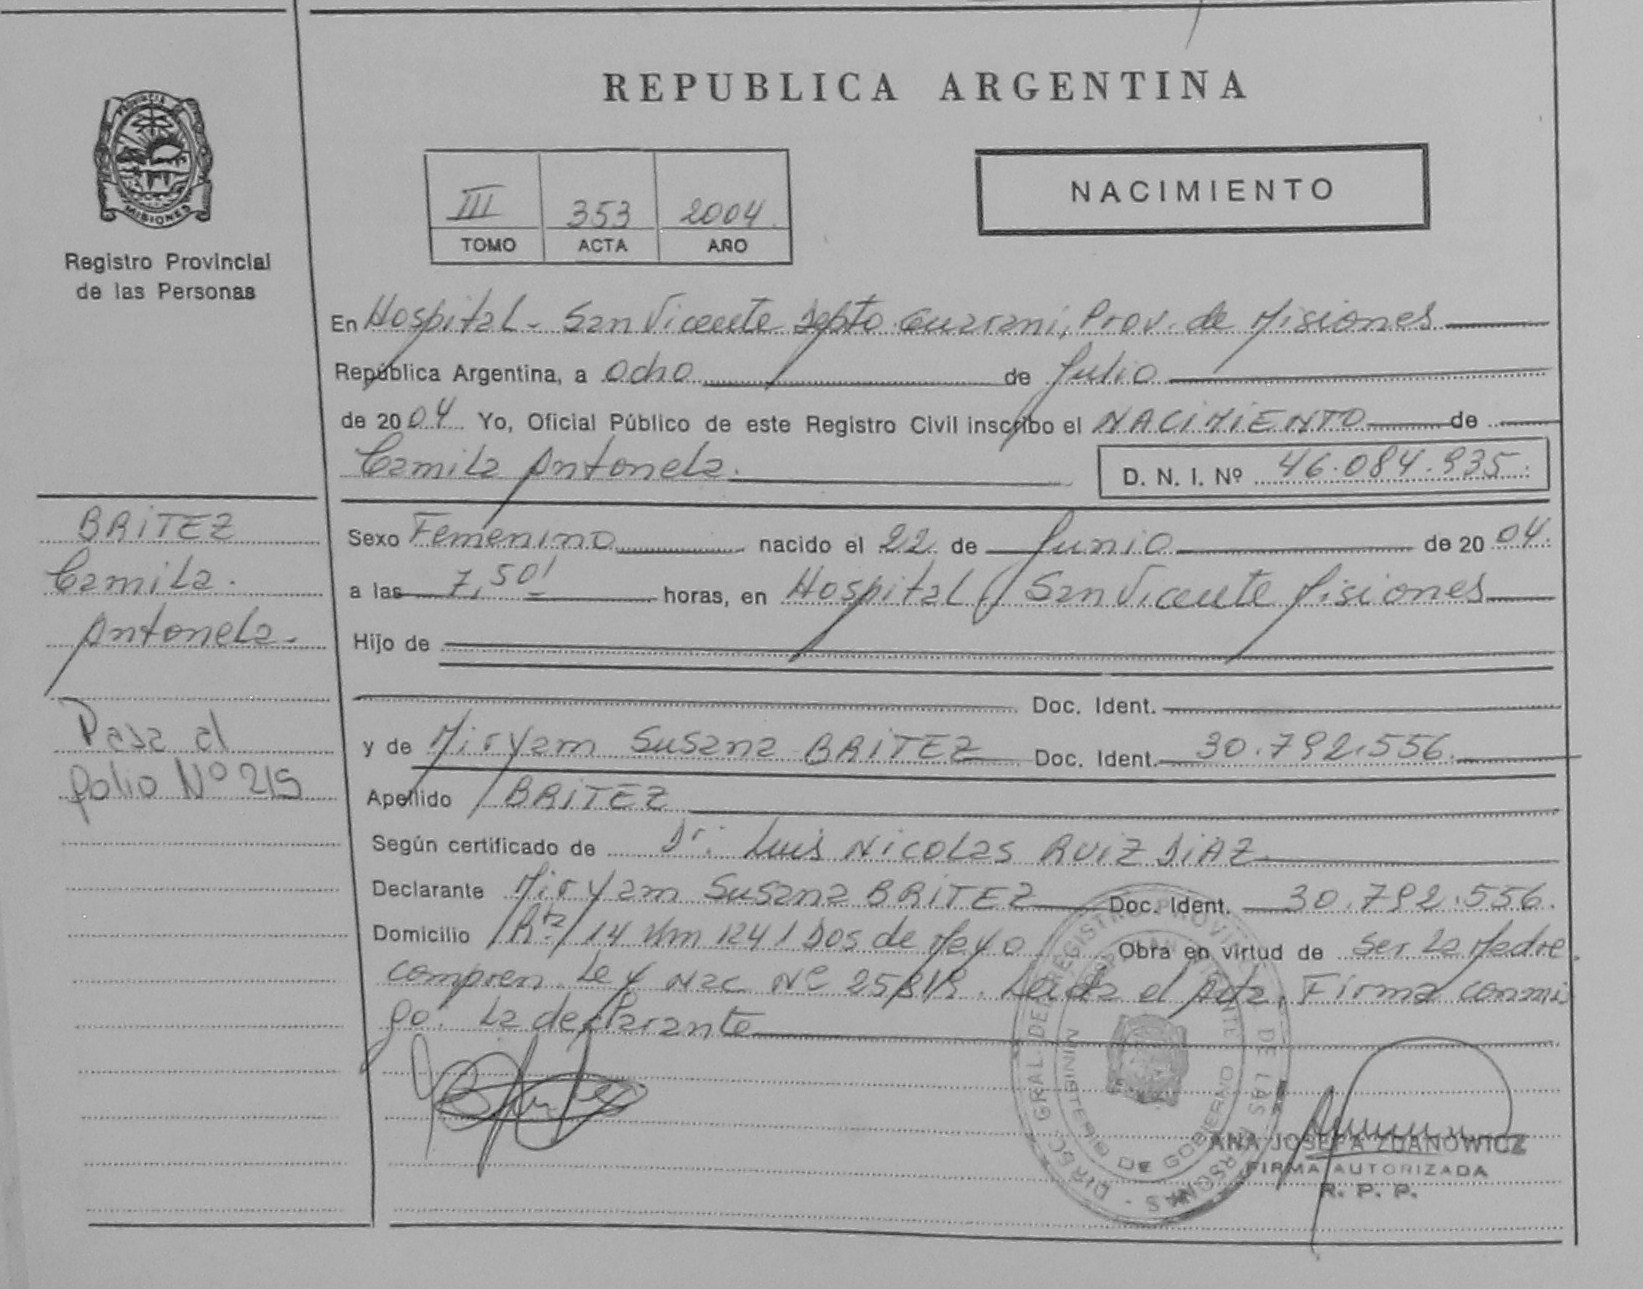 REPUBLICA ARGENTINA
PROVINCIA DE
MISIONES
Registro Provincial
de las Personas
III 353 2004
TOMO ACTA AÑO
NACIMIENTO
En Hospital - San Vicente Depto Guarani, Prov. de Misiones
República Argentina, a ocho de Julio
de 2004 Yo, Oficial Público de este Registro Civil inscribo el NACIMIENTO de
Camila Antonela. D. N. I. Nº 46.084.935.
BRITEZ
Camila.
Antonela.
Pasa al
folio Nº 215
Sexo Femenino nacido el 22 de Junio de 2004.
a las 7,50' horas, en Hospital San Vicente Misiones
Hijo de
Doc. Ident.
y de Miryam Susana BRITEZ Doc. Ident. 30.792.556.
Apellido BRITEZ
Según certificado de Dr. Luis Nicolas RUIZ DIAZ
Declarante Miryam Susana BRITEZ Doc. Ident. 30.792.556.
Domicilio Rta 14 Km 1241 Dos de Mayo Obra en virtud de ser la Madre.
compren. Ley Nac Nº Leida el Acta. Firma conmi
go. La declarante
DIREC. GRAL. DE REGISTRO PROVINCIAL DE LAS PERSONAS
MINISTERIO DE GOBIERNO
SAN VICENTE
ANA JOSEFA ZDANOWICZ
FIRMA AUTORIZADA
R. P. P.